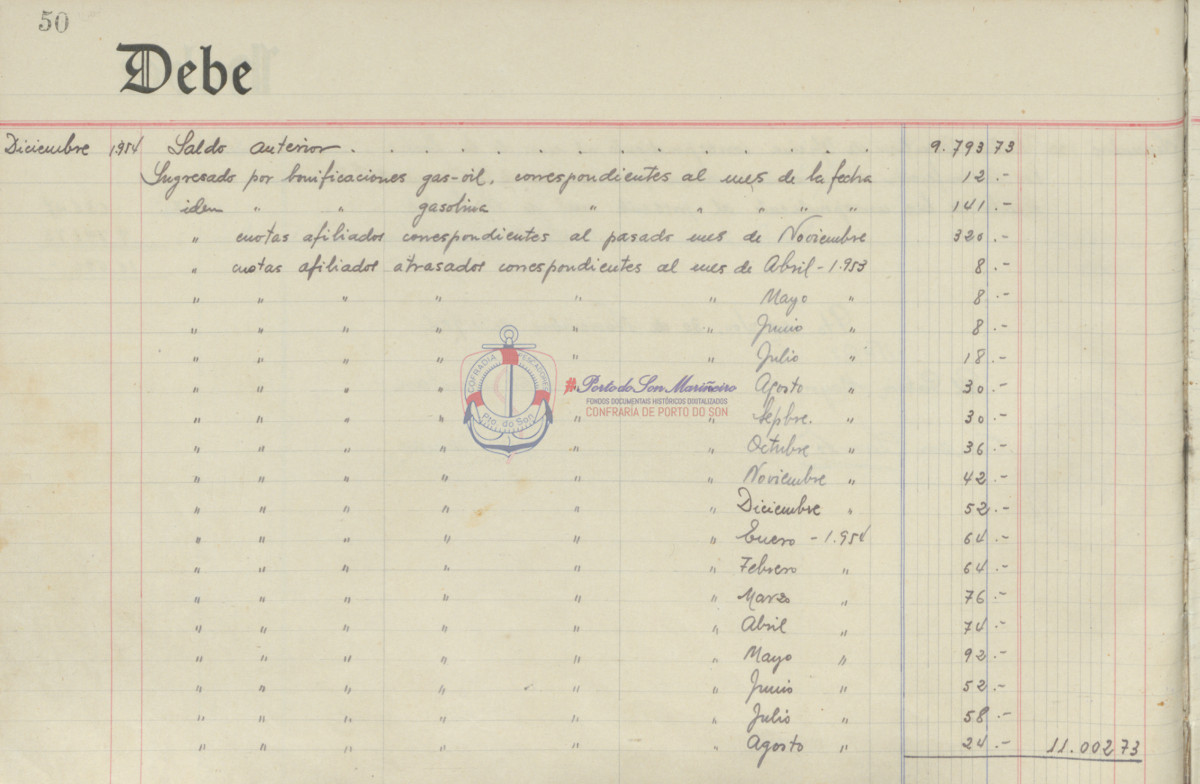 50
Debe
Diciembre 1954 Saldo anterior . . . . . . . . . . . . . . . 9.793 73
Ingresado por bonificaciones gas-oil, correspondientes al mes de la fecha 12.-
idem " " gasolina " " " " " 141.-
" cuotas afiliados correspondientes al pasado mes de Noviembre 320.-
" cuotas afiliados atrasados correspondientes al mes de Abril - 1.953 8.-
" " " " " " Mayo " 8.-
" " " " " " Junio " 8.-
" " " " " " Julio " 18.-
" " " " " " Agosto " 30.-
" " " " " " Sepbre. " 30.-
" " " " " " Octubre " 36.-
" " " " " " Noviembre " 42.-
" " " " " " Diciembre " 52.-
" " " " " " Enero - 1.954 64.-
" " " " " " Febrero " 64.-
" " " " " " Marzo " 76.-
" " " " " " Abril " 74.-
" " " " " " Mayo " 92.-
" " " " " " Junio " 52.-
" " " " " " Julio " 58.-
" " " " " " Agosto " 24.- 11.002 73
COFRADIA PESCADORES
Pto. do Son
#Porto do Son Mariñeiro
FONDOS DOCUMENTAIS HISTÓRICOS DIXITALIZADOS
CONFRARÍA DE PORTO DO SON